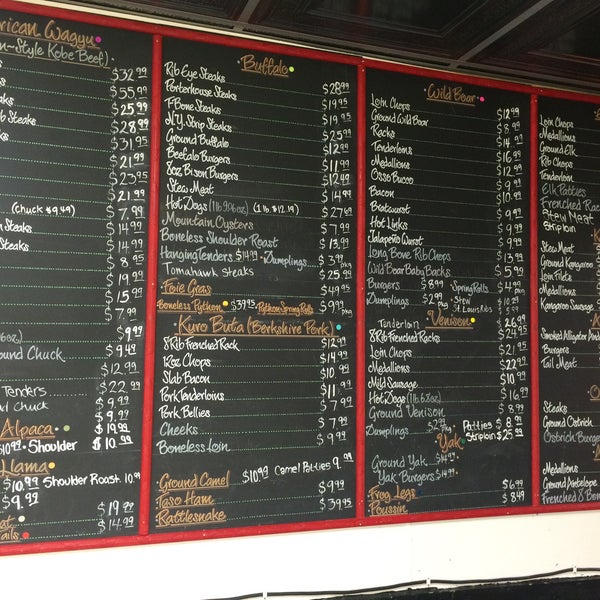 rican Wagyu
n-Style Kobe Beef)
$32.99
$55.99
$25.99
Steaks $28.99
$31.95
$21.99
$23.95
$21.99
(Chuck $9.49) $7.99
n Steaks $14.99
Steaks $14.99
$8.99
$19.99
$15.99
$7.99
$9.99
ound Chuck $9.49
$12.99
Tenders $22.99
Chuck $9.99
$9.99
Alpaca $19.99
$10.99 • Shoulder $10.99
Llama
$10.99 Shoulder Roast 10.99
$9.99
$19.99
ails $14.99
Buffalo
Rib Eye Steaks $28.99
Porterhouse Steaks $19.95
T Bone Steaks $19.95
N.Y. Strip Steaks $25.99
Ground Buffalo $12.99
Beefalo Burgers $11.99
8oz Bison Burgers $12.49
Stew Meat $14.99
Hot Dogs (1 lb. $12.19) $27.69
Mountain Oysters $7.99
Boneless Shoulder Roast $13.99
Hanging Tenders $14.99 • Dumplings $3.99 pkg
Tomahawk Steaks $25.99
Foie Gras $49.95
Boneless Python $39.95 • Python Spring Rolls $9.99 pkg
Kuro Buta (Berkshire Pork)
8 Rib Frenched Rack $12.99
12oz Chops $14.99
Slab Bacon $10.99
Pork Tenderloins $11.99
Pork Bellies $7.99
Cheeks $7.99
Boneless Loin $9.99
Ground Camel $10.99 Camel Patties 9.99
Taso Ham $9.99
Rattlesnake $39.95
Wild Boar
Loin Chops $12.99
Ground Wild Boar $8.99
Racks $14.99
Tenderloins $16.99
Medallions $12.99
Osso Buco $9.99
Bacon $10.99
Bratwurst $9.99
Hot Links $9.99
Jalapeño Wurst $9.99
Long Bone Rib Chops $13.99
Wild Boar Baby Backs $5.99
Burgers $8.99 • Spring Rolls $4.99
Dumplings $2.99 pkg • Stew $10.29
St. Louis Ribs $9.99
Venison
Tenderloin $26.99
8 Rib Frenched Racks $24.95
Loin Chops $21.99
Medallions $22.99
Mild Sausage $10.99
Hot Dogs (1 lb 6.8oz) $16.99
Ground Venison $8.99
Dumplings $2.99 pkg Patties $8.99
Striploin $25.99
Yak
Ground Yak $14.99
Yak Burgers $14.99
Frog Legs $6.99
Poussin $8.49
Loin Chops
Medallions
Ground Elk
Rib Chops
Tenderloin
Elk Patties
Frenched Rac
Stew Meat
Striploin
K
Stew Meat
Ground Kangaroo
Loin Filets
Medallions
Kangaroo Sausage
A
Smoked Alligator Andou
Burgers
Tail Meat
O
Steaks
Ground Ostrich
Ostrich Burgers
Medallions
Ground Antelope
Frenched 8 Bon